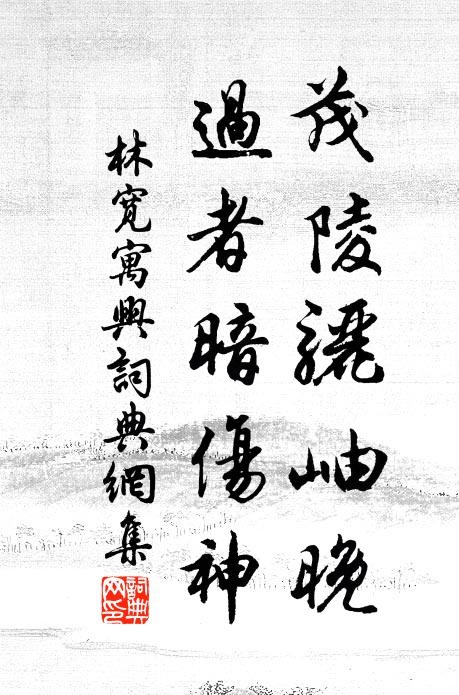 茂陵驪岫晚
過者暗傷神
林寬寓興詞典網集
詞典网印